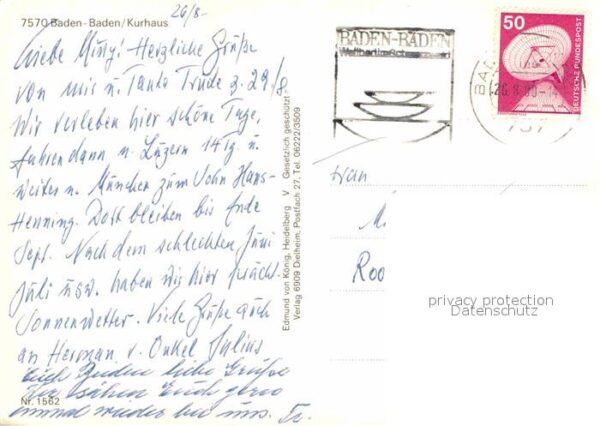 26/8-
7570 Baden-Baden/Kurhaus
Liebe Minny! Herzliche Grüße
von mir u. Tante Trude z. 29/8.
Wir verleben hier schöne Tage,
fuhren dann n. Luzern 14 Tg u.
weiter n. München zum Sohn Hans-
Henning. Dort bleiben bis Ende
Sept. Nach dem schlechten Juni
Juli usw. haben wir hier pracht.
Sonnenwetter. Viele Grüße auch
an Herman u. Onkel Julius
Euch Beiden liebe Grüße
Wir sähen Euch gern
einmal wieder bei uns. Tr.
Nr. 1562
Edmund von König, Heidelberg V Gesetzlich geschützt
Verlag 6909 Dielheim, Postfach 27, Tel. 06222/3509
BADEN-BADEN
50
DEUTSCHE BUNDESPOST
BAD
26.8.80-1
757
Frau
M
Roo
privacy protection
Datenschutz